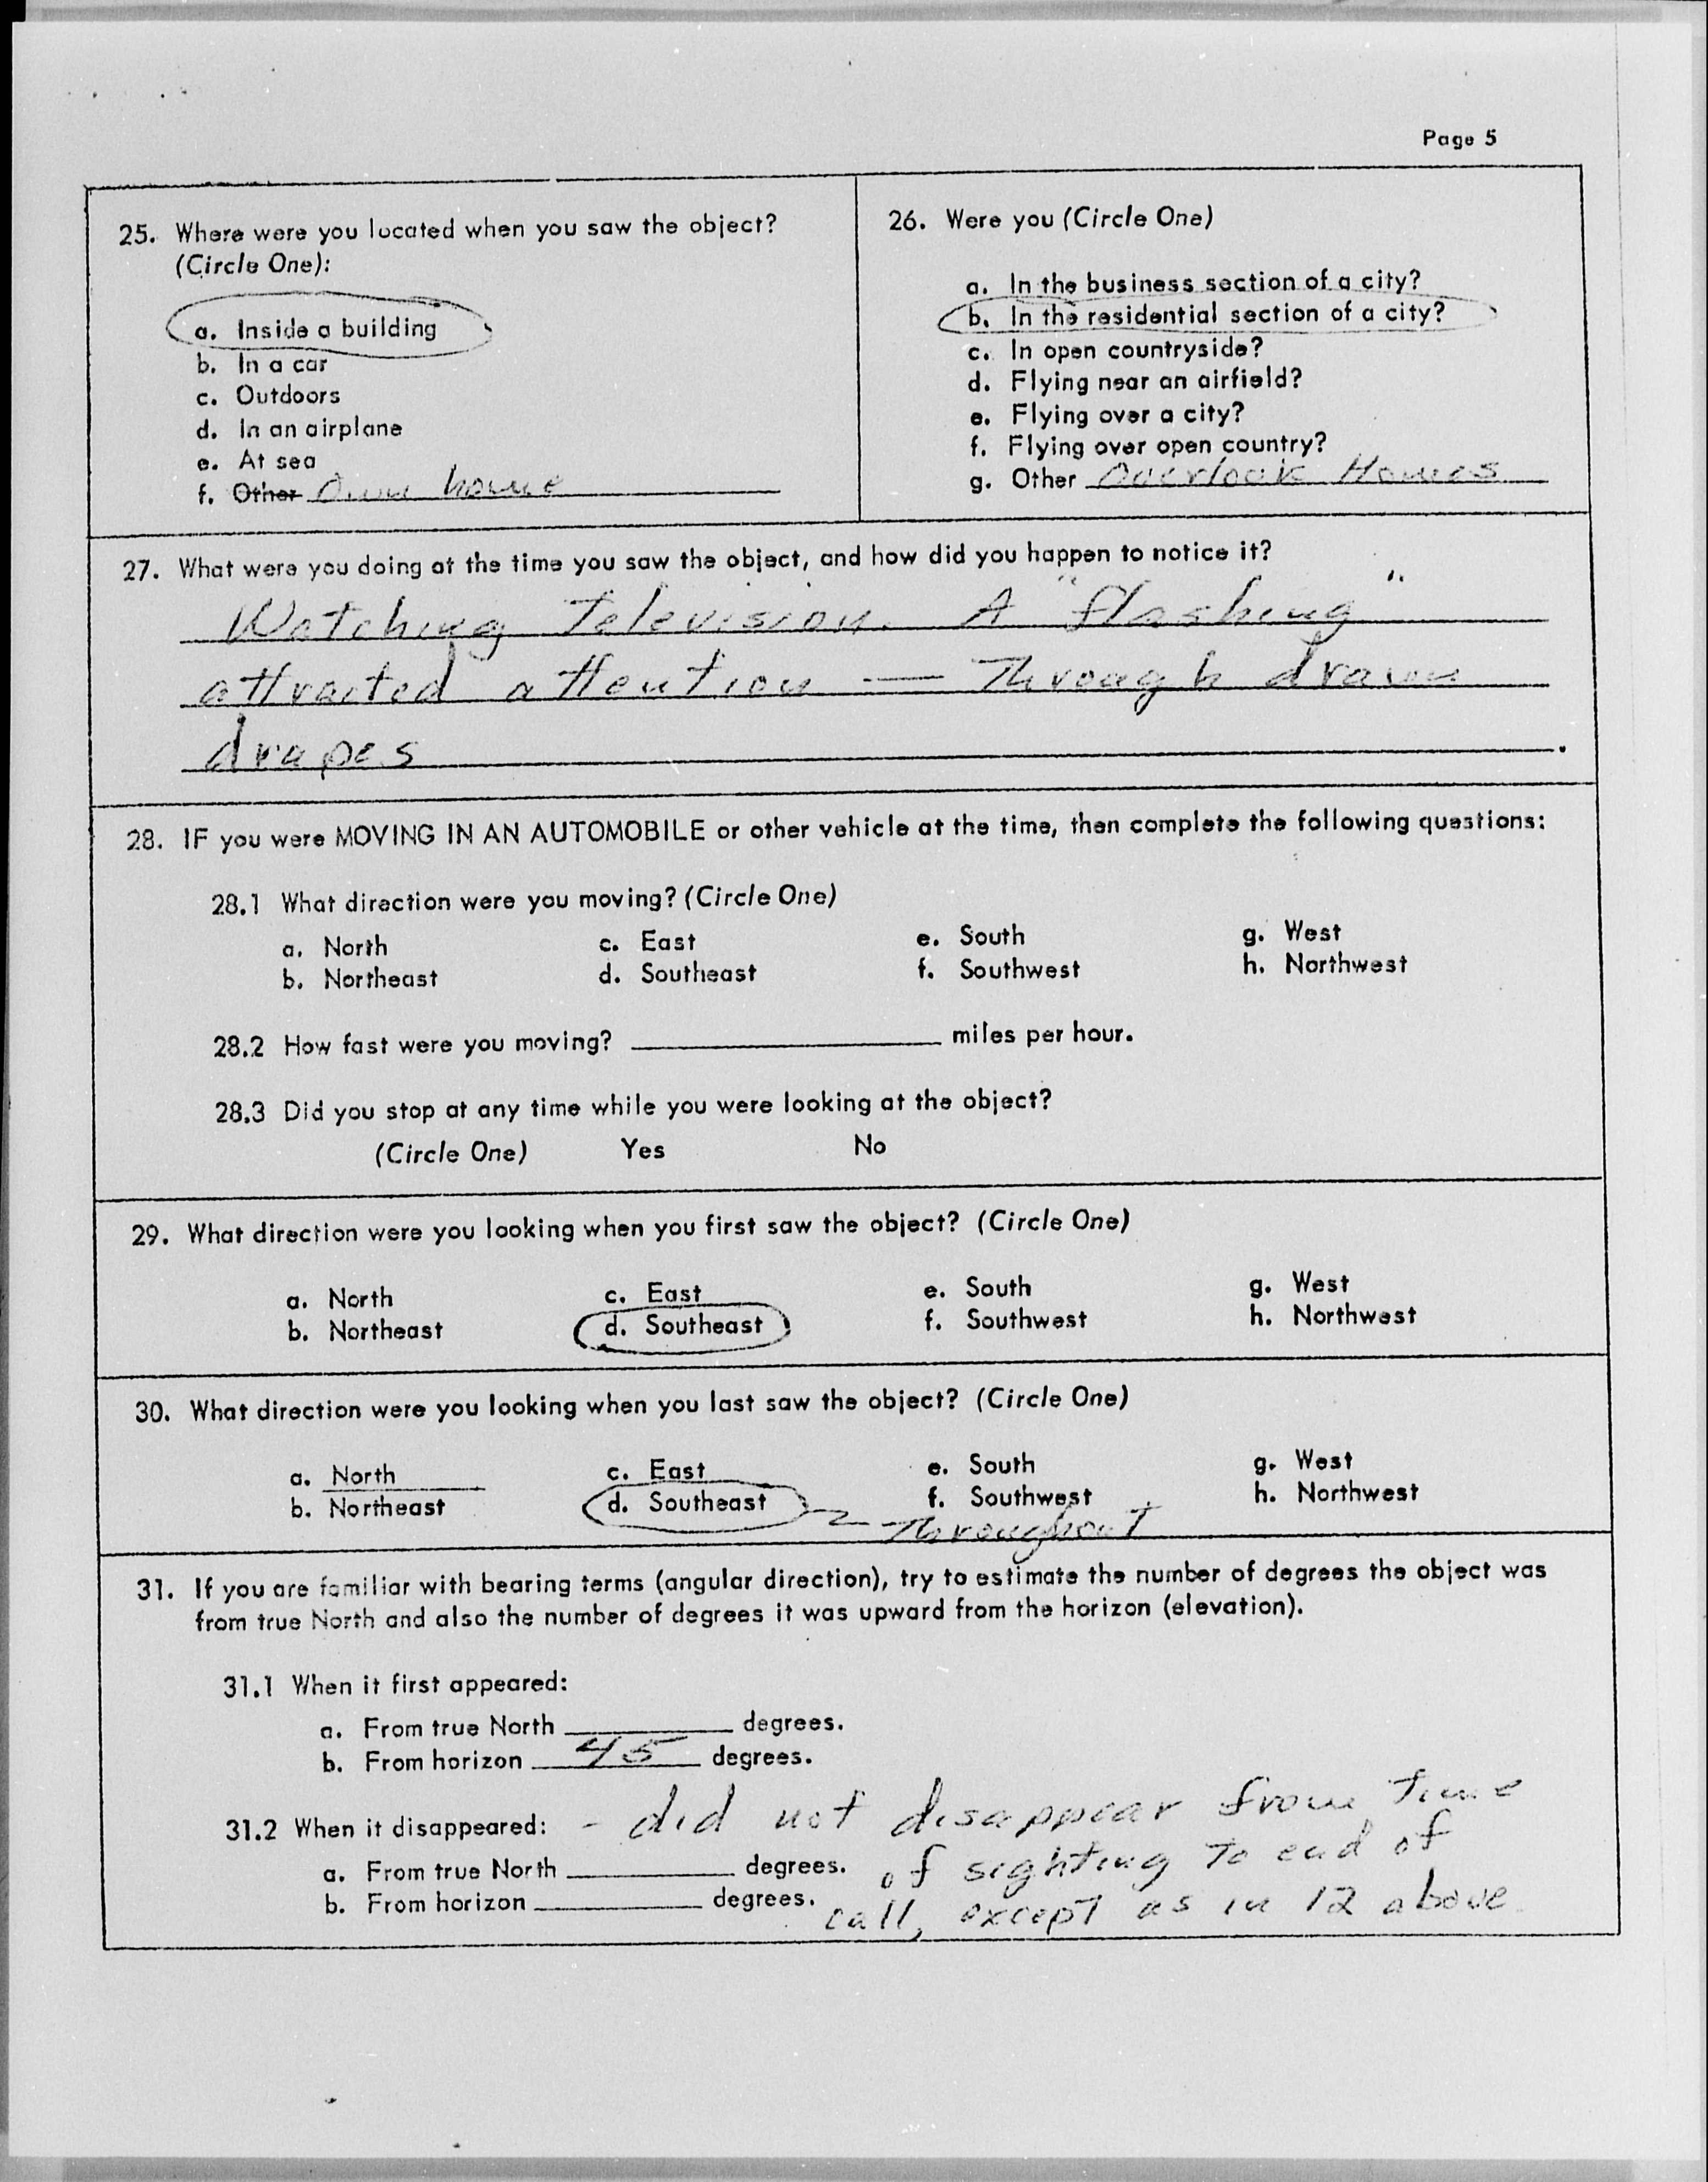 Page 5
25. Where were you located when you saw the object?
(Circle One):
a. Inside a building
b. In a car
c. Outdoors
d. In an airplane
e. At sea
f. Other Own home
26. Were you (Circle One)
a. In the business section of a city?
b. In the residential section of a city?
c. In open countryside?
d. Flying near an airfield?
e. Flying over a city?
f. Flying over open country?
g. Other Overlook Homes
27. What were you doing at the time you saw the object, and how did you happen to notice it?
Watching Television. A "flashing"
attracted attention — Through drawn
drapes.
28. IF you were MOVING IN AN AUTOMOBILE or other vehicle at the time, then complete the following questions:
28.1 What direction were you moving? (Circle One)
a. North c. East e. South g. West
b. Northeast d. Southeast f. Southwest h. Northwest
28.2 How fast were you moving? miles per hour.
28.3 Did you stop at any time while you were looking at the object?
(Circle One) Yes No
29. What direction were you looking when you first saw the object? (Circle One)
a. North c. East e. South g. West
b. Northeast d. Southeast f. Southwest h. Northwest
30. What direction were you looking when you last saw the object? (Circle One)
a. North c. East e. South g. West
b. Northeast d. Southeast f. Southwest h. Northwest
Throughout
31. If you are familiar with bearing terms (angular direction), try to estimate the number of degrees the object was
from true North and also the number of degrees it was upward from the horizon (elevation).
31.1 When it first appeared:
a. From true North degrees.
b. From horizon 45 degrees.
31.2 When it disappeared: - did not disappear from Time
a. From true North degrees. of sighting To end of
b. From horizon degrees. call, except as in 12 above